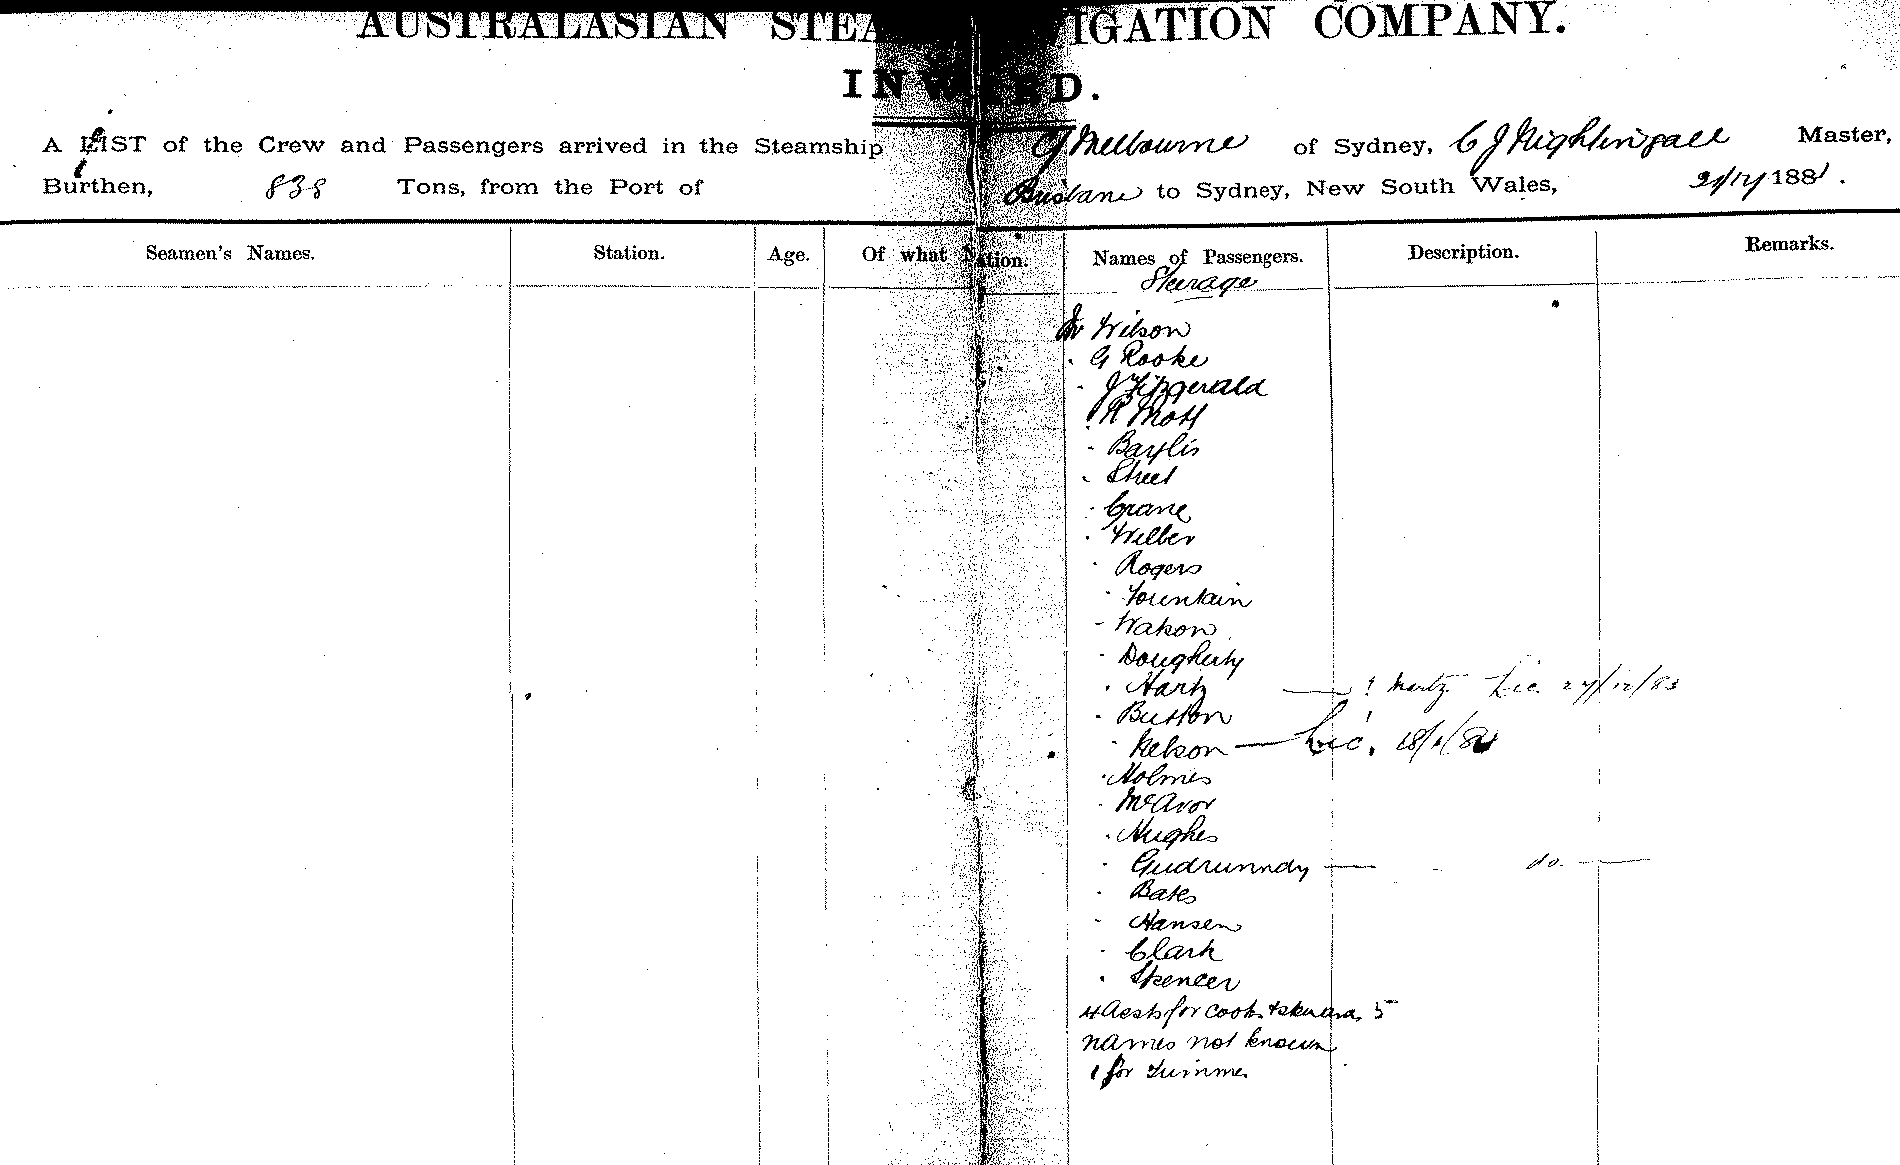 AUSTRALASIAN STEAM NAVIGATION COMPANY.
INWARD.
A LIST of the Crew and Passengers arrived in the Steamship Melbourne of Sydney, C J Nightingall Master,
Burthen, 838 Tons, from the Port of Brisbane to Sydney, New South Wales, 188
Seamen's Names. Station. Age. Of what Nation. Names of Passengers. Description. Remarks.
Steerage
Mr Wilson
- G Rooke
- J Fitzgerald
- R Mott
- Baylis
- Street
- Crane
- Wilber
- Rogers
- Fountain
- Watson
- Dougherty
- Hartz — ? Mertz Lic.
- Button
- Nelson — Lic.
- Holmes
- McAvor
- Hughes
- Gudrunndy — do. —
- Bates
- Hansen
- Clark
- Spencer
4 for cooks & 5
names not known
1 for